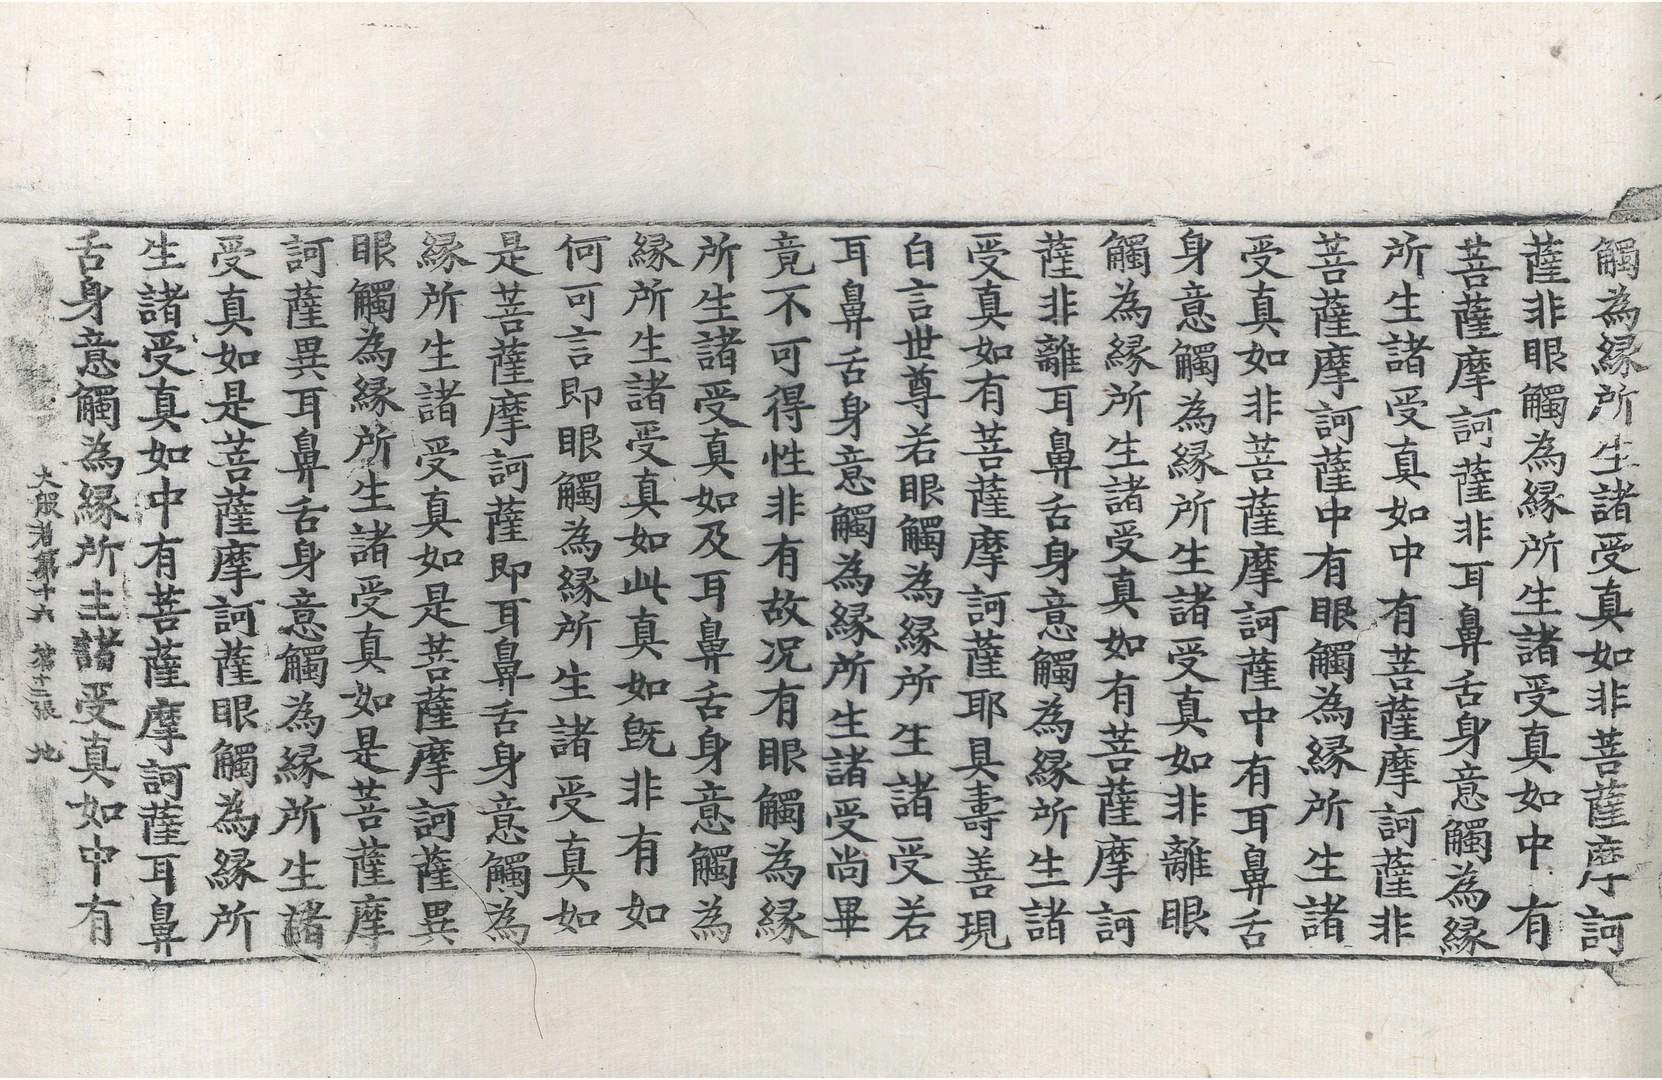 觸為縁所生諸受真如非菩薩摩訶
薩非眼觸為縁所生諸受真如中有
菩薩摩訶薩非耳鼻舌身意觸為縁
所生諸受真如中有菩薩摩訶薩非
菩薩摩訶薩中有眼觸為縁所生諸
受真如非菩薩摩訶薩中有耳鼻舌
身意觸為縁所生諸受真如非離眼
觸為縁所生諸受真如有菩薩摩訶
薩非離耳鼻舌身意觸為縁所生諸
受真如有菩薩摩訶薩耶具壽善現
白言世尊若眼觸為縁所生諸受若
耳鼻舌身意觸為縁所生諸受尚畢
竟不可得性非有故况有眼觸為縁
所生諸受真如及耳鼻舌身意觸為
縁所生諸受真如此真如旣非有如
何可言即眼觸為縁所生諸受真如
是菩薩摩訶薩即耳鼻舌身意觸為
縁所生諸受真如是菩薩摩訶薩異
眼觸為縁所生諸受真如是菩薩摩
訶薩異耳鼻舌身意觸為縁所生諸
受真如是菩薩摩訶薩眼觸為縁所
生諸受真如中有菩薩摩訶薩耳鼻
舌身意觸為縁所生諸受真如中有
大般若第十六 第十二張 地